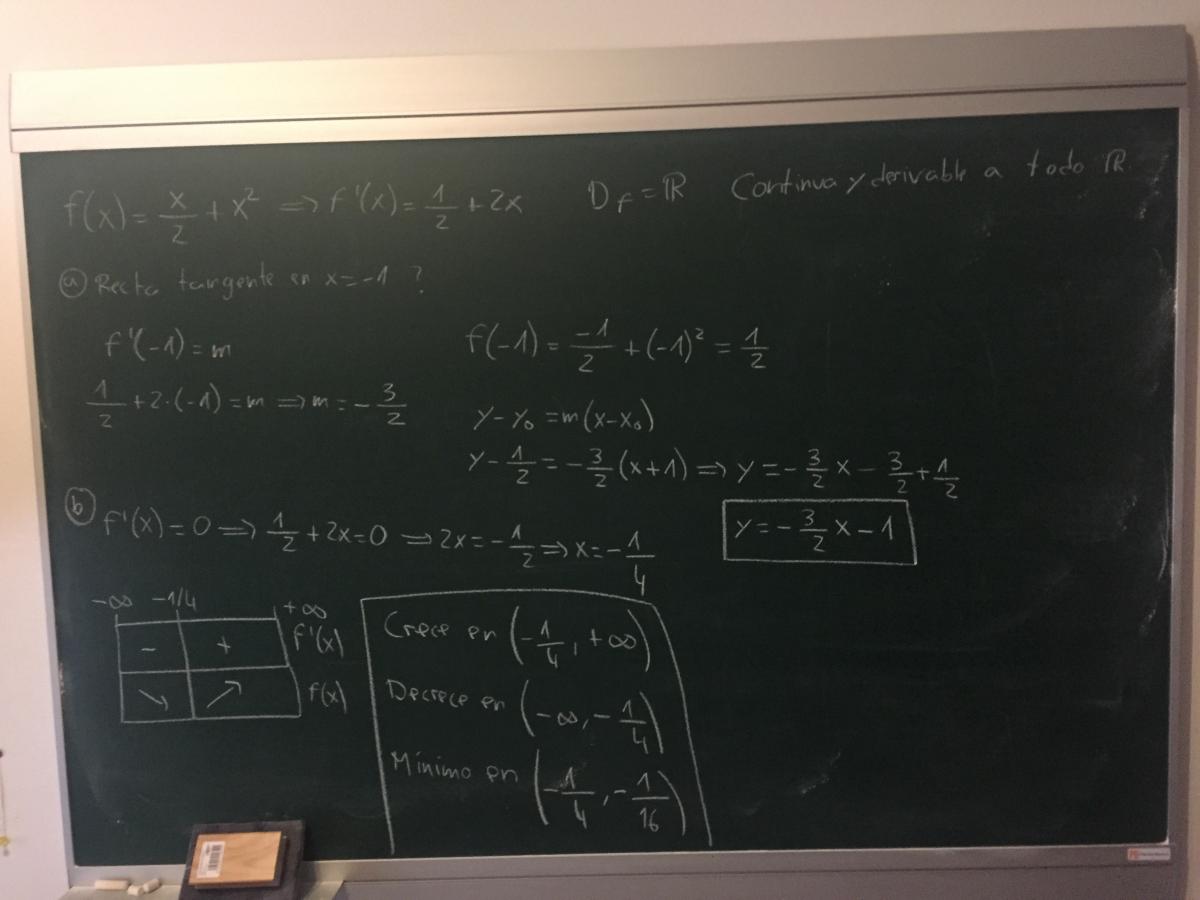 f(x) = x/2 + x² ⇒ f'(x) = 1/2 + 2x D_f = ℝ Continua y derivable a todo ℝ
ⓐ Recta tangente en x = -1 ?
f'(-1) = m
1/2 + 2·(-1) = m ⇒ m = -3/2
f(-1) = -1/2 + (-1)² = 1/2
y - y₀ = m(x - x₀)
y - 1/2 = -3/2 (x + 1) ⇒ y = -3/2 x - 3/2 + 1/2
y = -3/2 x - 1
ⓑ f'(x) = 0 ⇒ 1/2 + 2x = 0 ⇒ 2x = -1/2 ⇒ x = -1/4
-∞ -1/4 +∞
- + f'(x)
↘ ↗ f(x)
Crece en (-1/4, +∞)
Decrece en (-∞, -1/4)
Mínimo en (-1/4, -1/16)